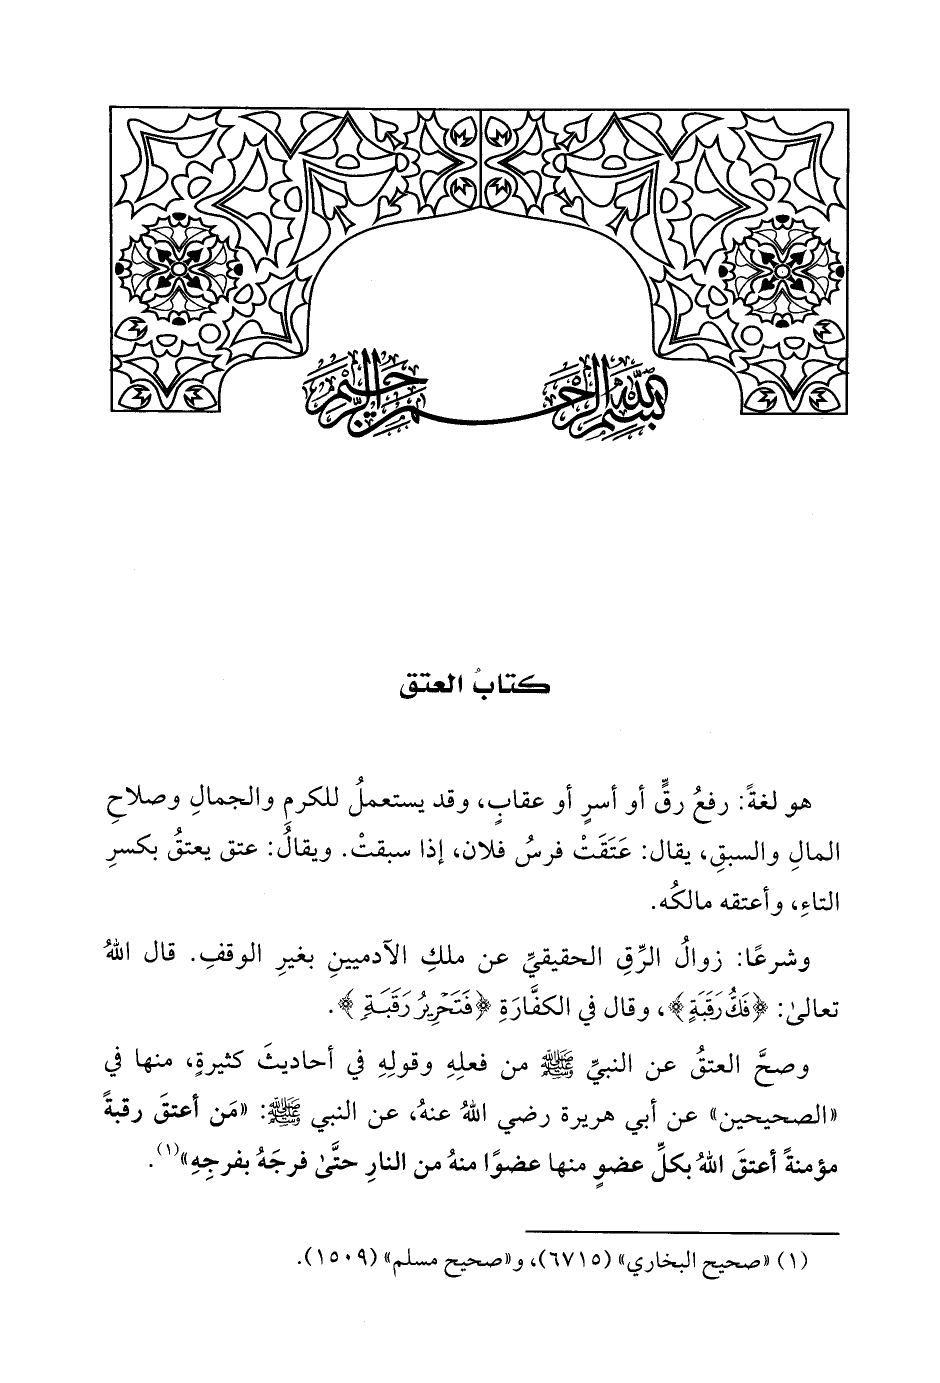 بسم الله الرحمن الرحيم
كتابُ العتق
هو لغةً: رفعُ رقٍّ أو أسرٍ أو عقابٍ، وقد يستعملُ للكرمِ والجمالِ وصلاحِ
المالِ والسبقِ، يقال: عَتَقَتْ فرسُ فلان، إذا سبقتْ. ويقالُ: عتق يعتقُ بكسرِ
التاءِ، وأعتقه مالكُه.
وشرعًا: زوالُ الرِّقِ الحقيقيِّ عن ملكِ الآدميينِ بغيرِ الوقفِ. قال اللهُ
تعالىٰ: ﴿فَكُّ رَقَبَةٍ﴾، وقال في الكفَّارَةِ ﴿فَتَحْرِيرُ رَقَبَةٍ﴾.
وصحَّ العتقُ عن النبيِّ ﷺ من فعلِهِ وقولِهِ في أحاديثَ كثيرةٍ، منها في
«الصحيحين» عن أبي هريرة رضي اللهُ عنهُ، عن النبي ﷺ: «مَن أعتقَ رقبةً
مؤمنةً أعتقَ اللهُ بكلِّ عضوٍ منها عضوًا منهُ من النارِ حتَّىٰ فرجَهُ بفرجِهِ»(١).
(١) «صحيح البخاري» (٦٧١٥)، و«صحيح مسلم» (١٥٠٩).